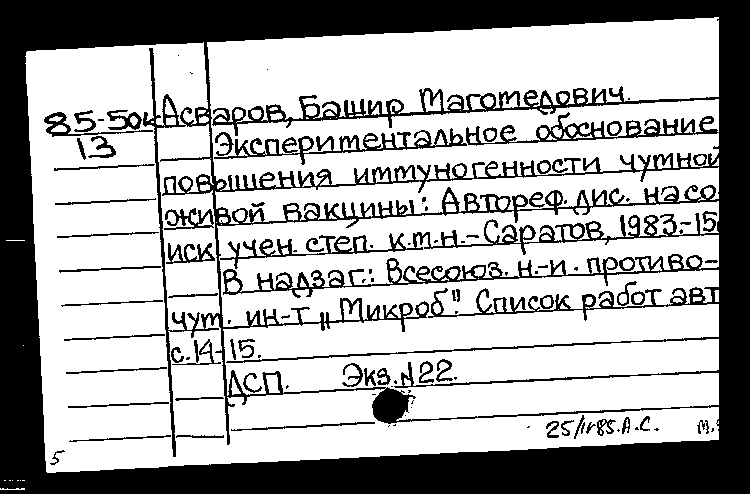 85-50к Асваров, Башир Магомедович.
13 Экспериментальное обоснование
повышения иммуногенности чумной
живой вакцины: Автореф. дис. на со
иск учен. степ. к.м.н. - Саратов, 1983. - 15
В надзаг.: Всесоюз. н.-и. противо-
чум. ин-т „Микроб". Список работ авт
с. 14-15.
ДСП. Экз. N22.
А.С.
5